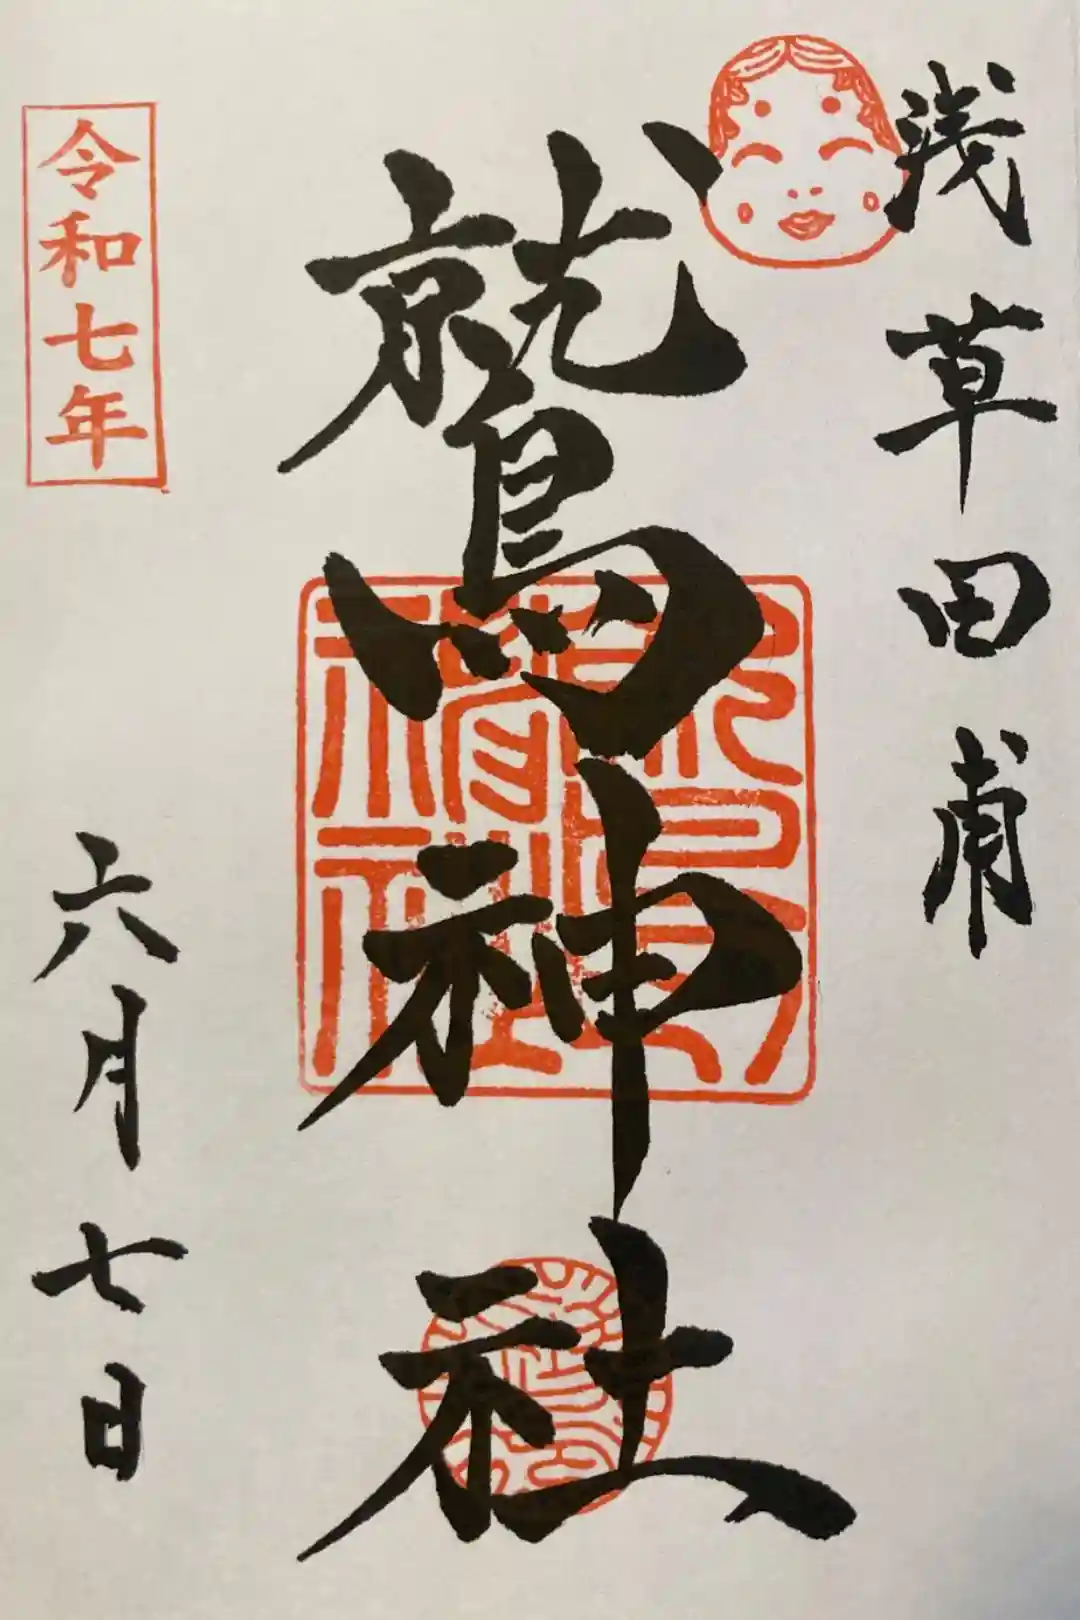 浅草田甫
鷲神社
令和七年
六月七日